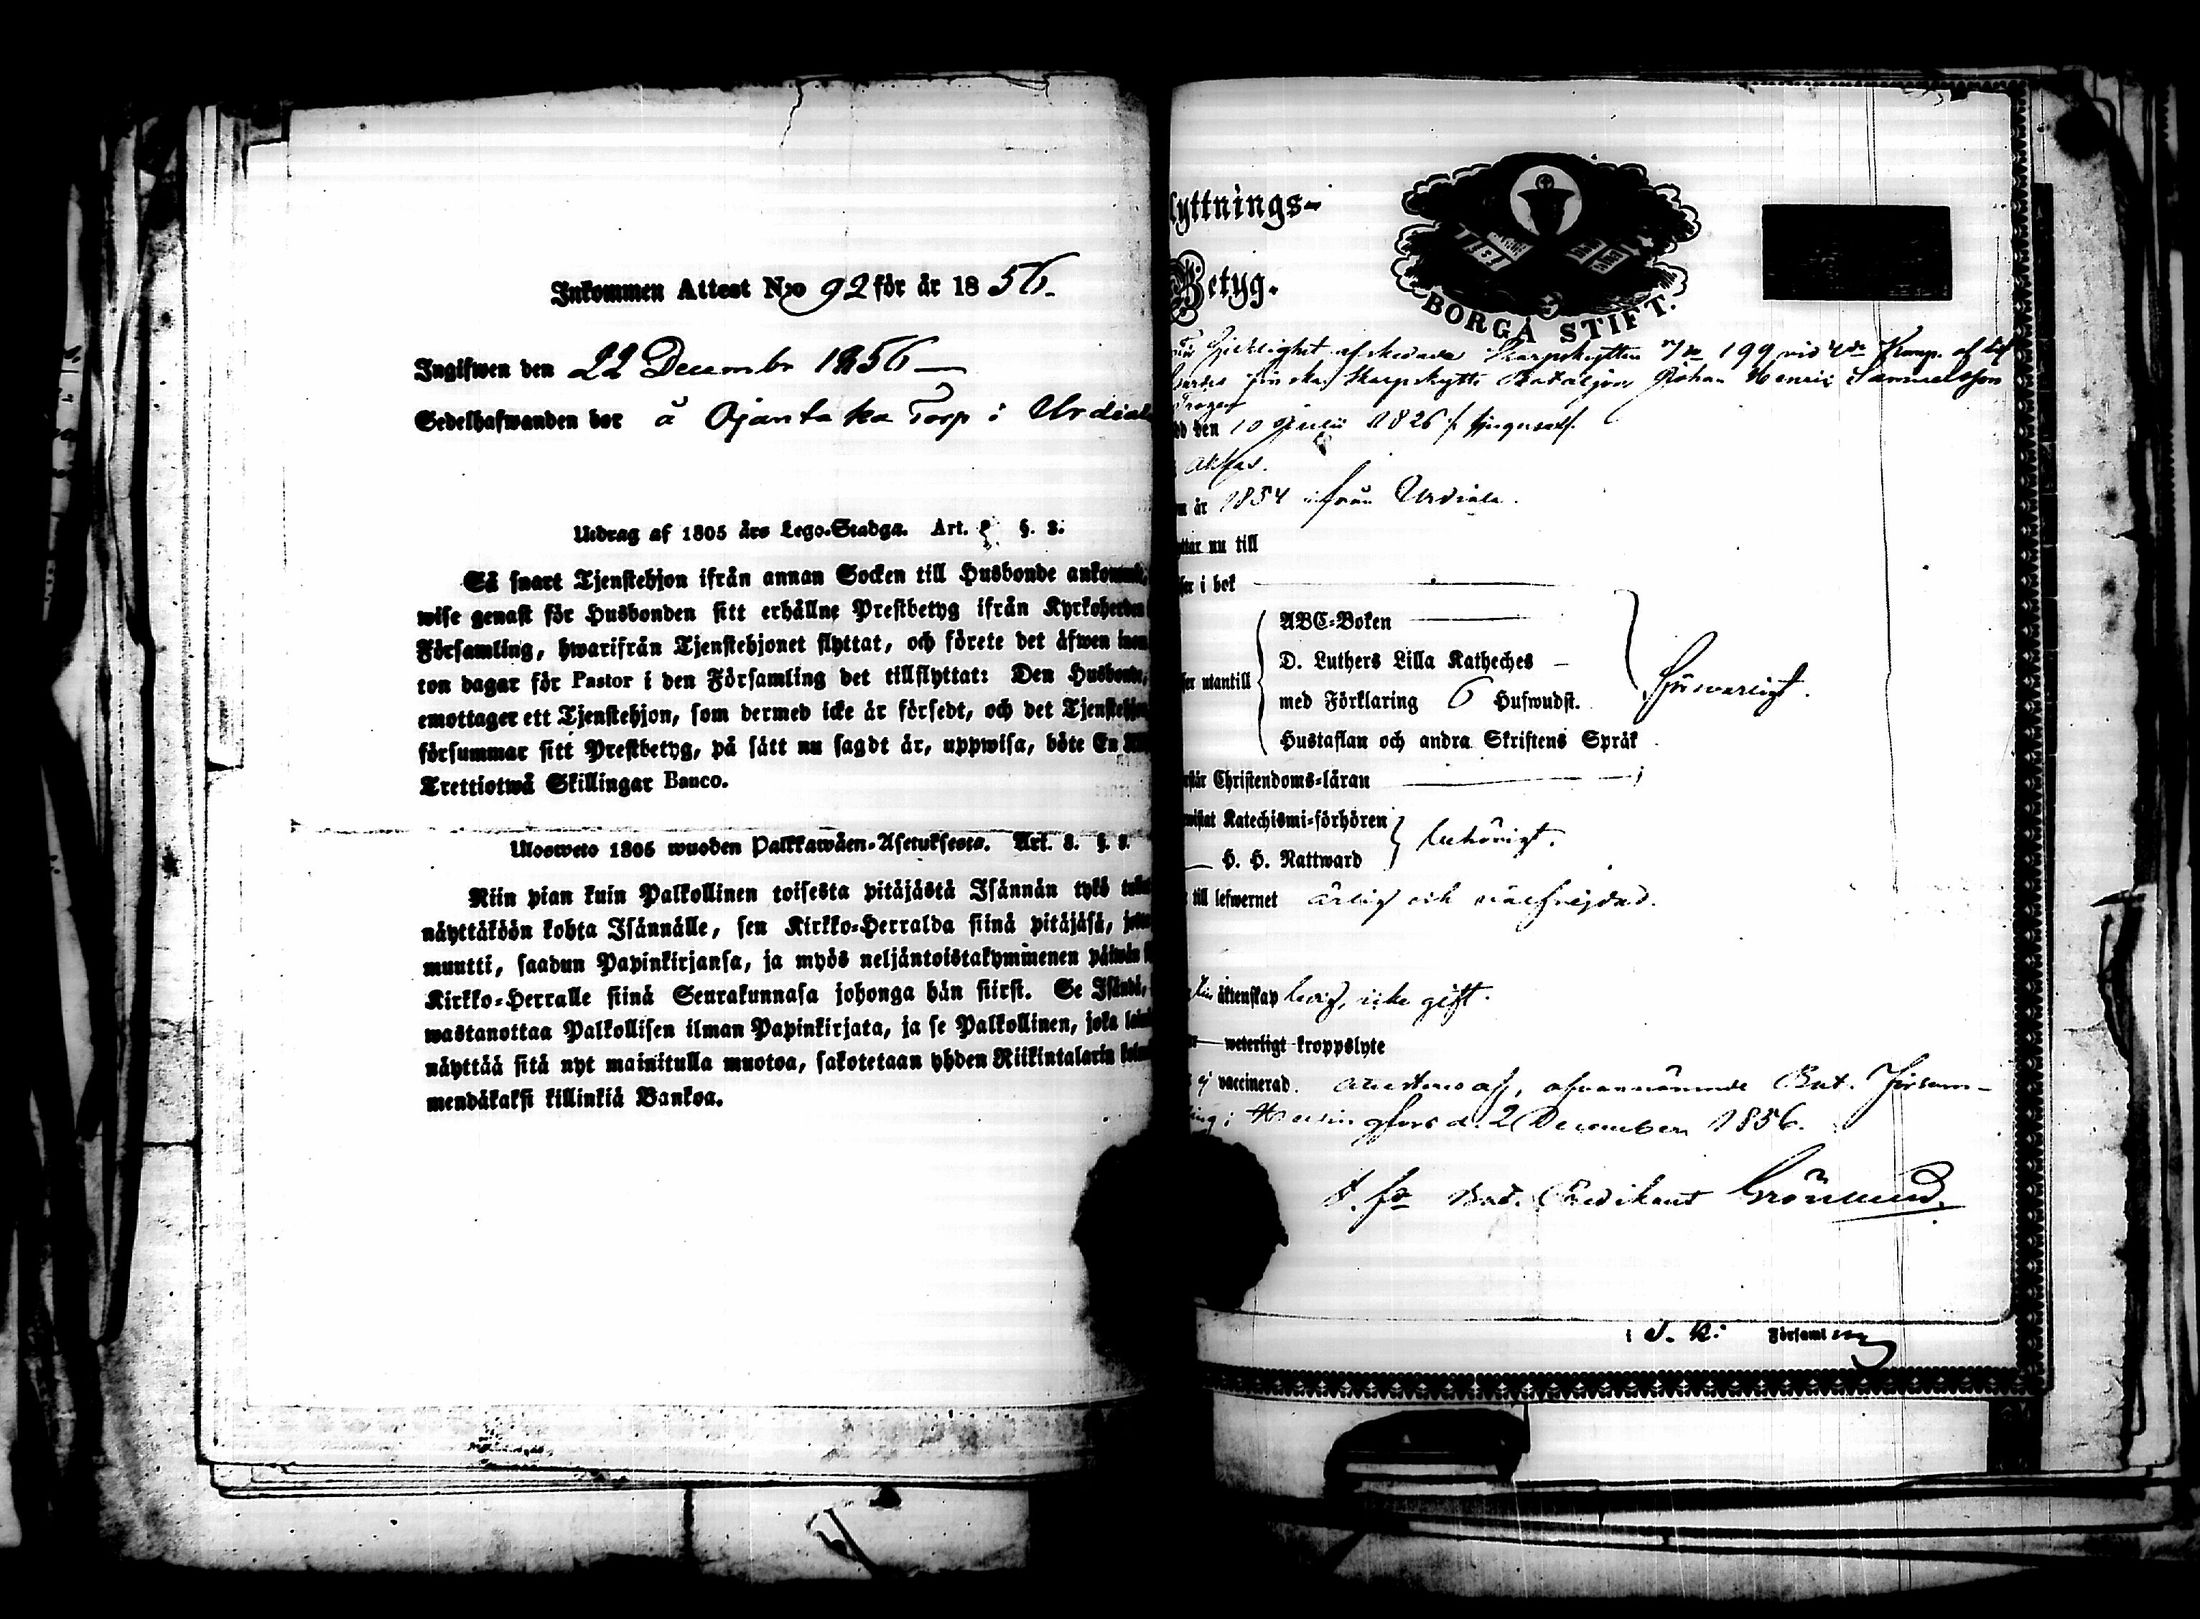 Inkommen Attest N:o 92 för år 1856.
Ingifwen den 22 Decembr 1856
Sedelhafwanden bor å Ojantaka Torp i Urdiala
Utdrag af 1805 års Lego-Stadga. Art. §. 8.
Så snart Tjenstehjon ifrån annan Socken till Husbonde
wise genast för Husbonden sitt erhållne Prestbetyg ifrån Kyrkoherden
Församling, hwarifrån Tjenstehjonet flyttat, och förete det äfwen inom
ton dagar för Pastor i den Församling det tillflyttat: Den Husbonde,
emottager ett Tjenstehjon, som dermed icke är försedt, och det Tjenstehjon
försummar sitt Prestbetyg, på sätt nu sagdt är, uppwisa, böte En
Trettiotwå Skillingar Banco.
Ulosweto 1805 wuoden Palkkawäen-Asetuksesta. Art. 8. §. 8.
Niin pian kuin Palkollinen toisesta pitäjästä Isännän tykö
näyttäköön kohta Isännälle, sen Kirkko-Herralda siinä pitäjäsä,
muutti, saadun Papinkirjansa, ja myös neljäntoistakymmenen päiwän
Kirkko-Herralle siinä Seurakunnasa johonga hän siirsi. Se Isändä,
wastanottaa Palkollisen ilman Papinkirjata, ja se Palkollinen, joka
näyttää sitä nyt mainitulla muotoa, sakotetaan yhden Riikintalarin
mendäkaksi killinkiä Bankoa.
lyttnings-
Betyg.
BORGÅ STIFT.
afskedade Skarpskytten N:o 199 vid 4de Komp. af
Finska Skarpskytte Bataljon Johan Henric Samuelsson
Trogen
den 10 Julii 1826
år 1854 ifrån Urdiala.
ttar nu till
i bok
ABC-Boken
D. Luthers Lilla Katheches
utantill med Förklaring 6 Hufwudst. Försvarligt.
Hustaflan och andra Skriftens Språk
Christendoms-läran
Katechismi-förhören
H. H. Nattward behörigt.
till lefwernet ärlig och välfrejdad.
äktenskap ledig, icke gift.
weterligt kroppslyte
vaccinerad. attesteras af, ofvannämnde Bat. Försam-
ling i Helsingfors d. 2 December 1856.
Bat. Predikant Grönlund.
i S. K. Församling